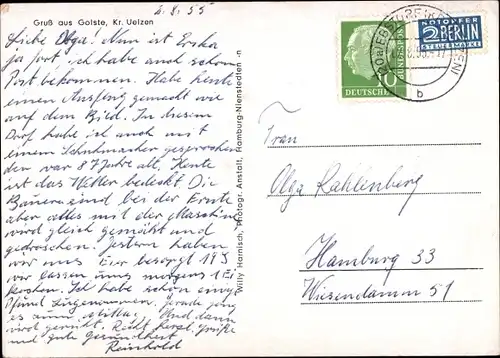 2.8.55
Gruß aus Golste, Kr. Uelzen
Liebe Olga! Nun ist Erika
ja fort, ich habe auch schon
Post bekommen. Habe heute
einen Ausflug gemacht wie
auf dem Bild. In diesem
Dorf habe ich auch mit
einem Schuhmacher gesprochen
der war 87 Jahre alt. Heute
ist das Wetter bedeckt. Die
Bauern sind bei der Ernte
aber alles mit der Maschine
wird gleich gemäht und
gedroschen. Gestern haben
wir uns Eier besorgt 18
wir lassen uns morgens 1 Ei
kochen. Ich habe schon einige
Pfund zugenommen. Gerade
es zum Und dann
wird geruht. Recht herzl. Grüße
und gute Gesundheit
Reinhold
Willy Hamisch, Photogr. Anstalt, Hamburg-Nienstedten
DEUTSCHE BUNDESPOST
10
NOTOPFER
2 BERLIN
STEUERMARKE
EBSTORF
b
Frau
Olga Rahlenberg
Hamburg 33
Wiesendamm 51